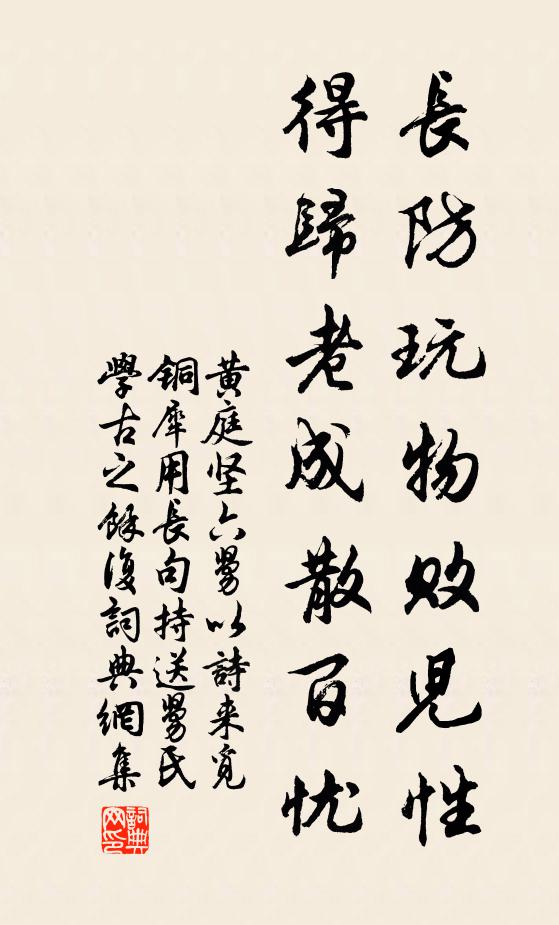 長防玩物敗兒性
得歸老成散百忧
黄庭坚六舅以詩来覓
铜犀用長句持送舅氏
學古之餘復詞典網集
詞典网印